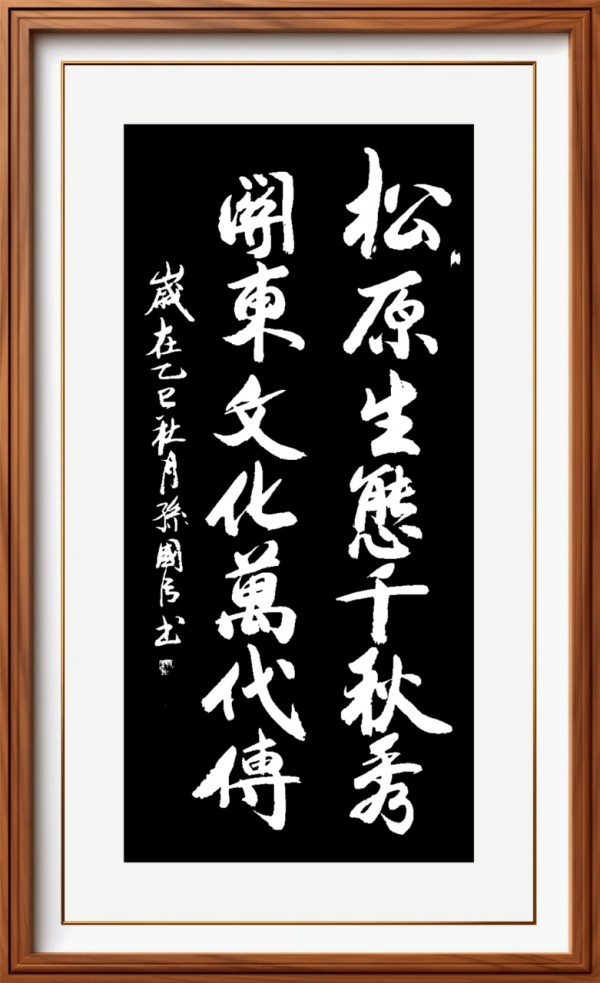 松原生態千秋秀
關東文化萬代傳
歲在乙巳秋月孫國信書